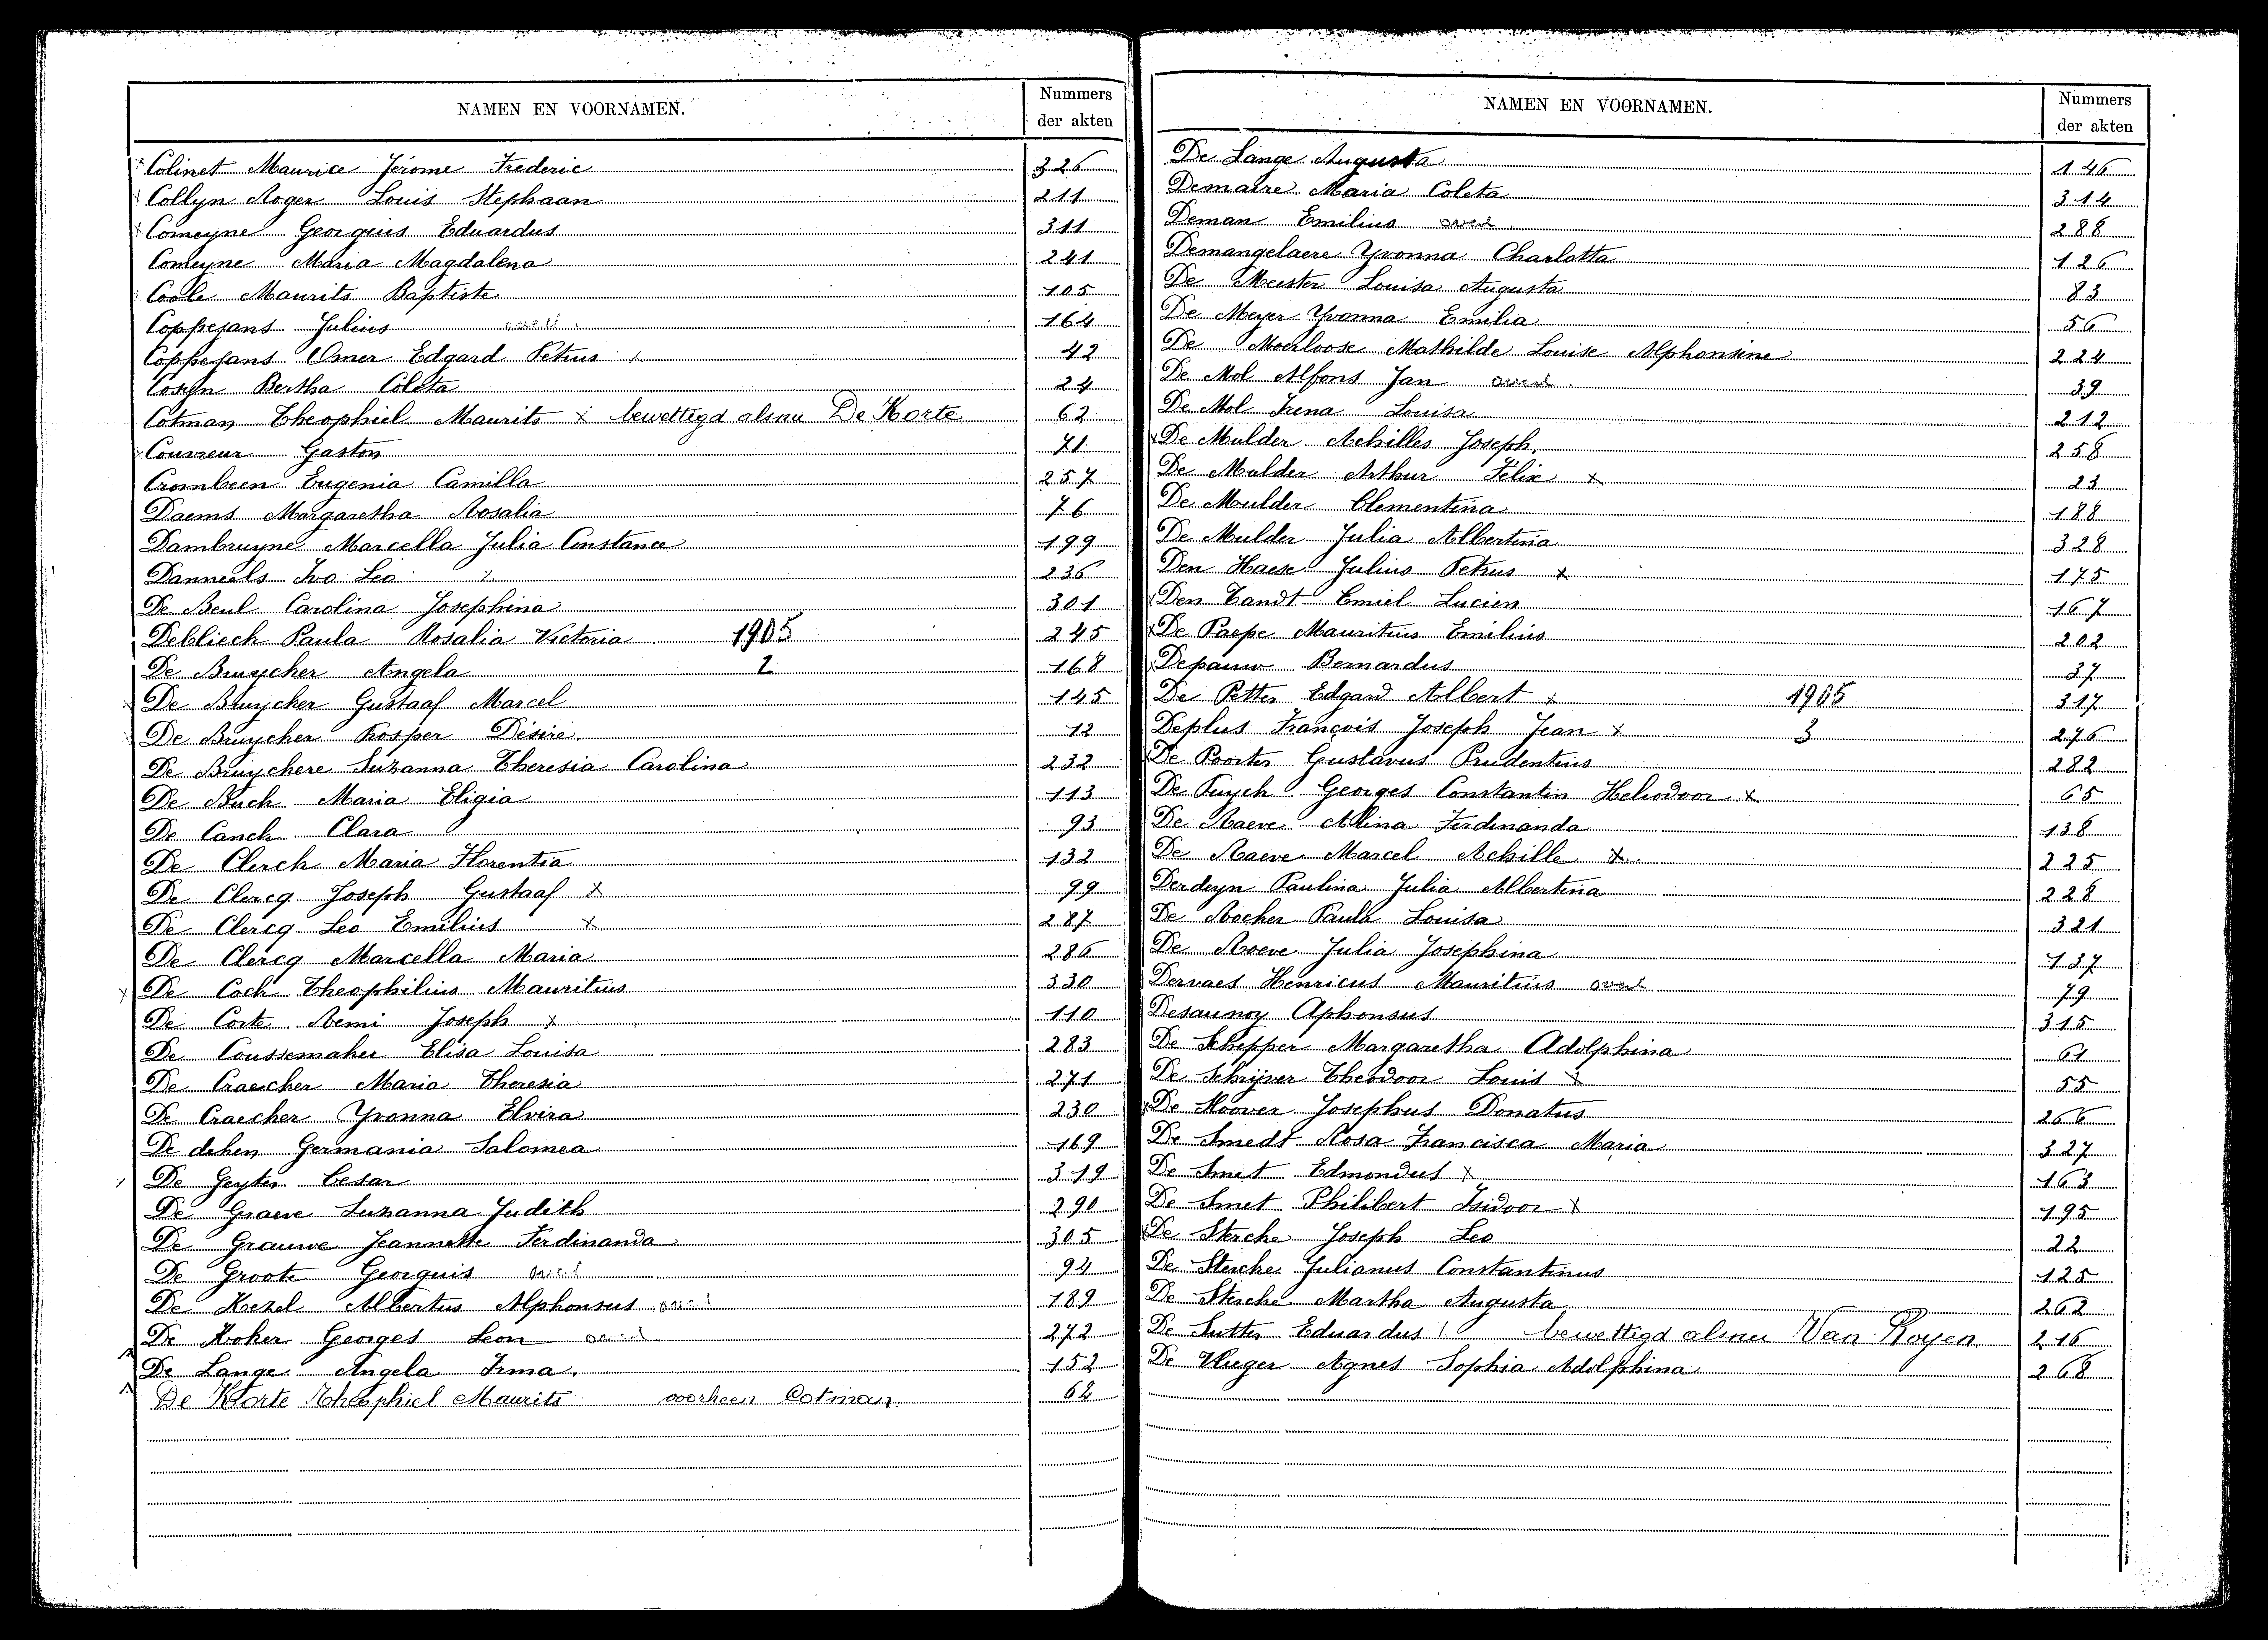 NAMEN EN VOORNAMEN. Nummers der akten
Colinet Maurice Jérome Frederic 326
Collyn Roger Louis Stephaan 211
Comeyne Georgius Eduardus 311
Comeyne Maria Magdalena 241
Coole Maurits Baptiste 105
Coppejans Julius overl. 164
Coppejans Omer Edgard Petrus x 42
Cosyn Bertha Coleta 24
Cotman Theophiel Maurits x bewettigd alsnu De Korte 62
Couvreur Gaston 71
Crombeen Eugenia Camilla 257
Daems Margaretha Rosalia 76
Dambruyne Marcella Julia Constance 199
Danneels Ivo Leo x 236
De Beul Carolina Josephina 301
Debliech Paula Rosalia Victoria 1905 245
De Bruycker Angela 2 168
De Bruycker Gustaaf Marcel 145
De Bruycker Prosper Désiré. 12
De Bruyckere Suzanna Theresia Carolina 232
De Buck Maria Eligia 113
De Canck Clara 93
De Clerck Maria Florentia 132
De Clercq Joseph Gustaaf x 99
De Clercq Leo Emilius x 287
De Clercq Marcella Maria 286
De Cock Theophilius Mauritius 330
De Corte Remi Joseph x 110
De Coussemaker Elisa Louisa 283
De Craecker Maria Theresia 271
De Craecker Yvonna Elvira 230
De deken Germania Salomea 169
De Geyter Cesar 319
De Graeve Suzanna Judith 290
De Grauwe Jeannette Ferdinanda 305
De Groote Georguis overl 94
De Kezel Albertus Alphonsus overl 189
De Koker Georges Leon overl 272
De Lange Angela Irma. 152
De Korte Theophiel Maurits voorheen Cotman 62
NAMEN EN VOORNAMEN. Nummers der akten
De Lange Augusta 146
Demaire Maria Coleta 314
Deman Emilius overl. 288
Demangelaere Yvonna Charlotta 126
De Meester Louisa Augusta 83
De Meyer Yvonna Emilia 56
De Moerloose Mathilde Louise Alphonsine 224
De Mol Alfons Jan overl. 39
De Mol Irena Louisa 212
De Mulder Achilles Joseph. 258
De Mulder Arthur Félix x 23
De Mulder Clementina 188
De Mulder Julia Albertina 328
Den Haese Julius Petrus x 175
Den Tandt Emiel Lucien 167
De Paepe Mauritius Emilius 202
Depauw Bernardus 37
De Petter Edgard Albert x 1905 317
Deplus François Joseph Jean x 3 276
De Poorter Gustavus Prudentius 282
De Puyck Georges Constantin Heliodoor x 65
De Raeve Alina Ferdinanda 138
De Raeve Marcel Achille x 225
Derdeyn Paulina Julia Albertina 228
De Rocker Paula Louisa 321
De Roeve Julia Josephina 137
Dervaes Henricus Mauritius overl 79
Desaunoy Aphonsus 315
De Schepper Margaretha Adolphina 61
De Schrijver Theodoor Louis x 55
De Sloover Josephus Donatus 266
De Smedt Rosa Francisca Maria 327
De Smet Edmondus x 163
De Smet Philibert Isidoor x 195
De Stercke Joseph Leo 22
De Stercke Julianus Constantinus 125
De Stercke Martha Augusta 262
De Sutter Eduardus bewettigd alsnu Van Royen 216
De Vlieger Agnes Sophia Adolphina 268